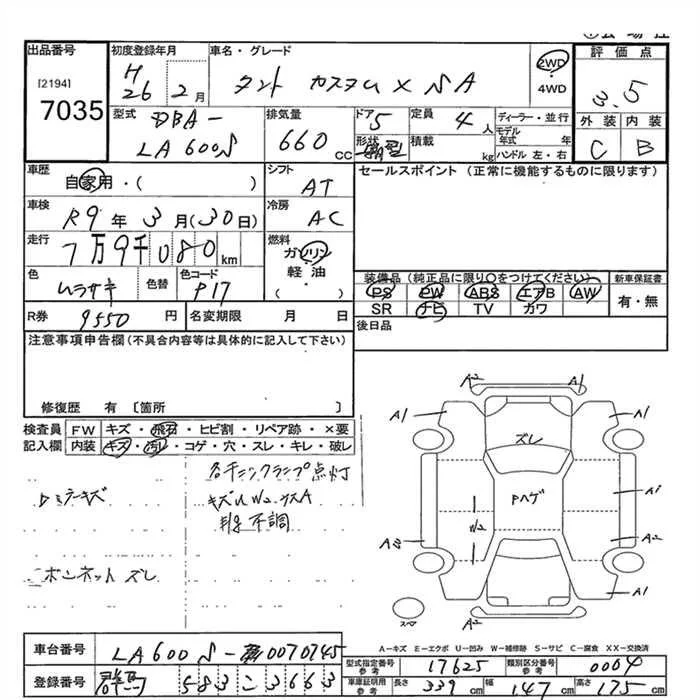 出品番号
[2194]
7035
初度登録年月
H26 2月
車名・グレード
タント カスタム X SA
2WD
・
4WD
評価点
3.5
外装 内装
C B
型式
DBA-
LA600S
排気量
660 CC
ドア
5
形状
定員
4人
積載 kg
ディーラー・並行
モデル年式 年
ハンドル 左・右
車歴
自家用・( )
シフト
AT
セールスポイント (正常に機能するものに限ります)
車検
R9年3月(30日)
冷房
AC
走行
7万9千080km
燃料
ガソリン
軽油
( )
色
ムラサキ
色替
色コード
P17
装備品(純正品に限り○をつけてください)
PS PW ABS エアB AW
SR ナビ TV カワ
新車保証書
有・無
R券 9550円
名変期限 月 日
後日品
注意事項申告欄(不具合内容等は具体的に記入して下さい)
修復歴 有 〔箇所 〕
検査員 FW キズ・飛石・ヒビ割・リペア跡・×要
記入欄 内装 キズ・汚レ・コゲ・穴・スレ・キレ・破レ
各チェックランプ点灯
キズU W2 カスA
不調
ボンネット ズレ
A2 A1
A1 A1
ズレ
Pハゲ
A1
W2
A2
A1
A2
スペア
A-キズ E-エクボ U-凹み W-補修跡 S-サビ C-腐食 XX-交換済
車台番号 LA600S-0070745
登録番号 群馬 583 こ 3663
型式指定番号 参考 17625
類別区分番号 参考 0004
車庫証明用 参考 長さ 339cm 幅 147cm 高さ 175cm